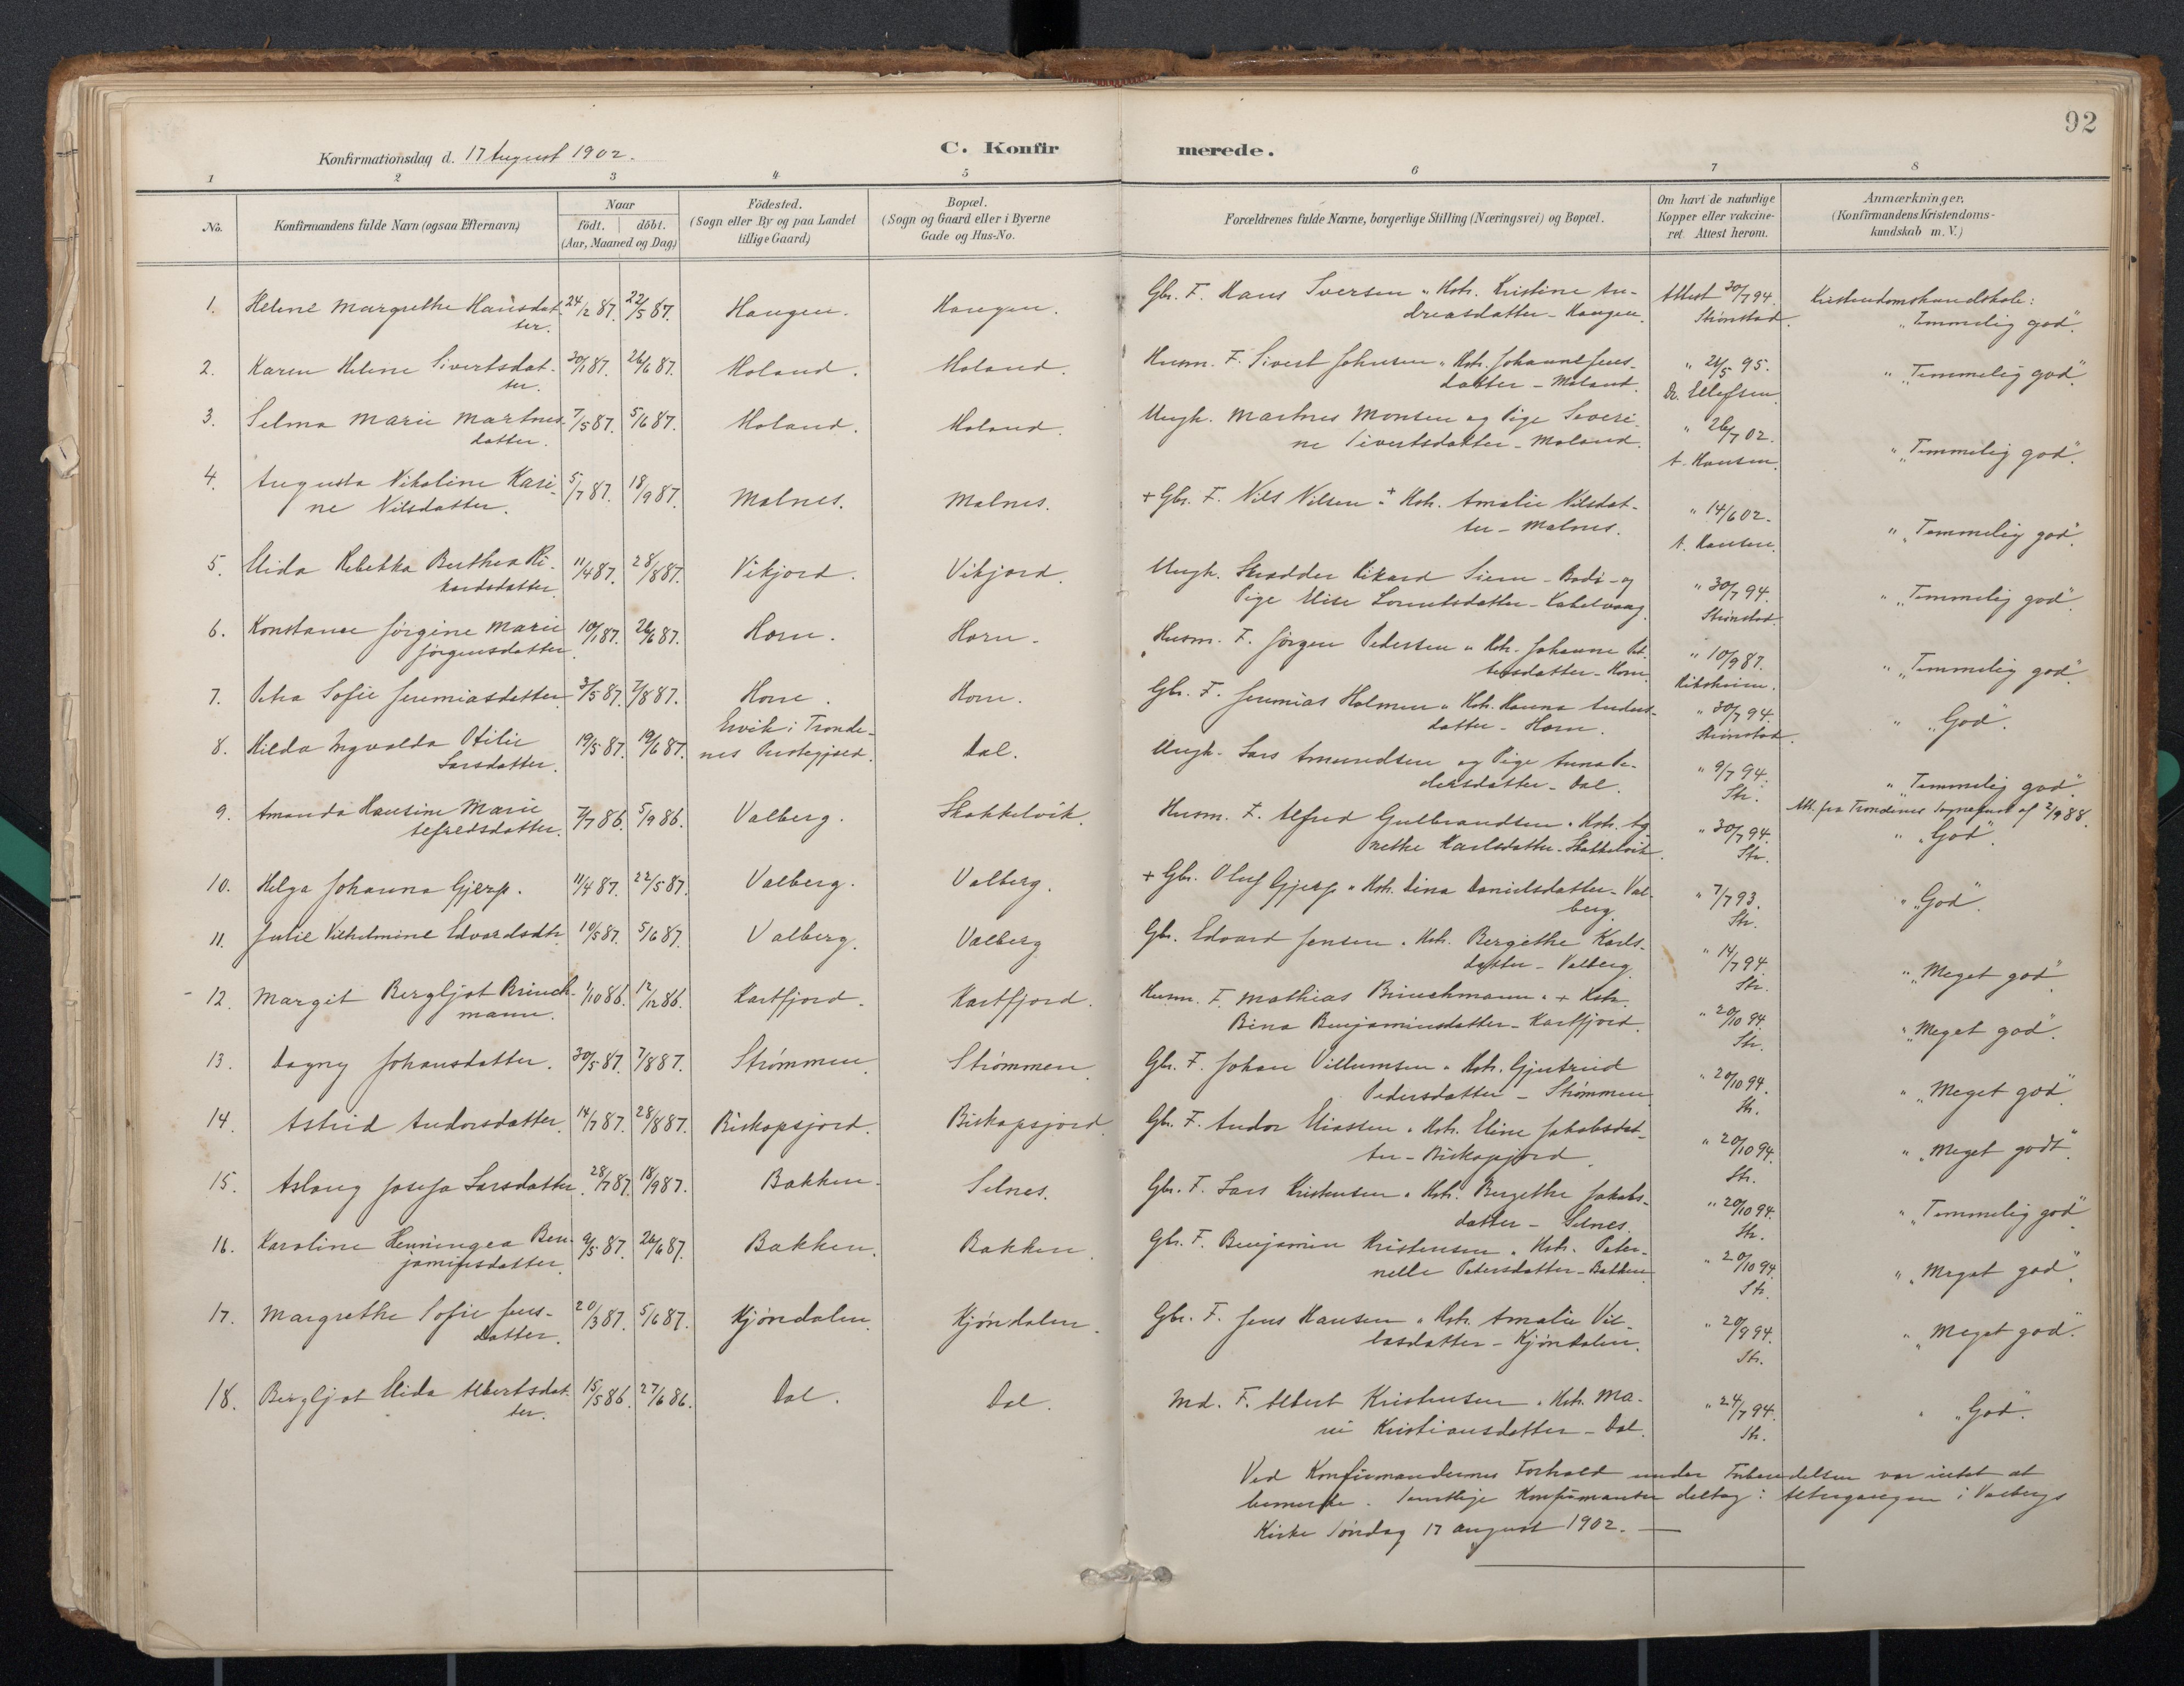 92
Konfirmationsdag d. 17 August 1902.
C. Konfir merede.
1 2 3 4 5 6 7 8
No.
Konfirmandens fulde Navn (ogsaa Efternavn)
Naar
födt. döbt.
(Aar, Maaned og Dag)
Födested.
(Sogn eller By og paa Landet
tillige Gaard)
Bopæl.
(Sogn og Gaard eller i Byerne
Gade og Hus-No.
Forældrenes fulde Navne, borgerlige Stilling (Næringsvei) og Bopæl.
Om havt de naturlige
Kopper eller vakcine-
ret. Attest herom.
Anmærkninger.
(Konfirmandens Kristendoms-
kundskab m. V.)
1. Helene Margrethe Hansdat- 24/2 87. 22/5 87. Haugen. Haugen. Gbr. F. Hans Iversen " Hstr. Kristine An- Attest 30/7 94. Kristendomskundskab:
ter. dreasdatter - Haugen. Strønstad. "Temmelig god".
2. Karen Helene Sivertsdat- 30/1 87. 26/6 87. Holand. Holand. Husm. F. Sivert Johnsen " Hstr. Johanne Jens- " 21/5 95. " "Temmelig god".
ter. datter - Holand. Dr. Ellefsen.
3. Selma Marie Martines- 7/5 87. 5/6 87. Holand. Holand. Ungk. Martines Monsen og Pige Severi- " 26/7 02. " "Temmelig god".
datter. ne Sivertsdatter - Holand. A. Hansen.
4. Augusta Nikoline Kari- 5/7 87. 18/9 87. Malnes. Malnes. + Gbr. F. Nils Nilsen " + Hstr. Amalie Nilsdat- " 14/6 02. " "Temmelig god".
ne Nilsdatter. ter - Malnes. A. Hansen.
5. Elida Rebekka Berthea Ri- 11/4 87. 28/8 87. Vikjord. Vikjord. Ungk. Skrædder Rikard Siem - Bodø - og " 30/7 94. " "Temmelig god".
kardsdatter. Pige Elise Lorentsdatter - Kabelvaag. Strønstad.
6. Konstance Jørgine Marie 10/1 87. 26/6 87. Horn. Horn. Husm. F. Jørgen Pedersen " Hstr. Johanne Pet- " 10/9 87. " "Temmelig god".
Jørgensdatter. tersdatter - Horn.
7. Petra Sofie Jeremiasdatter 3/5 87. 7/8 87. Horn. Horn. Gbr. F. Jeremias Holmen " Hstr. Hanna Anders- " 30/7 94. " "God".
datter - Horn. Strønstad.
8. Hilda Ingvalda Otilie 19/5 87. 19/6 87. Ervik i Tronde- Dal. Ungk. Lars Amundsen og Pige Anna Pe- " 9/7 94. " "Temmelig god".
Larsdatter. nes Prestegjeld. dersdatter - Dal. Str. Att. fra Trondenes Sognepræst af 2/9 88.
9. Amanda Hansine Marie 7/7 86. 5/9 86. Valberg. Skakkelvik. Husm. F. Alfred Gulbrandsen " Hstr. Ag- " 30/7 94. " "God".
Alfredsdatter. nethe Karlsdatter - Skakkelvik. Str.
10. Helga Johanna Gjerp. 11/4 87. 22/5 87. Valberg. Valberg. + Gbr. Oluf Gjerp " Hstr. Dina Danielsdatter - Val- " 7/7 93. " "God".
berg. Str.
11. Julie Vilhelmine Edvardsdtr 10/5 87. 5/6 87. Valberg. Valberg Gbr. Edvard Jensen " Hstr. Bergethe Karls- " 14/7 94. " "Meget god".
datter - Valberg. Str.
12. Margit Bergljot Brinch- 1/10 86. 12/12 86. Hartfjord. Hartfjord. Husm. F. Mathias Brinchmann " + Hstr. " 20/10 94. " "Meget god".
mann. Bina Benjaminsdatter - Hartfjord. Str.
13. Dagny Johansdatter. 30/5 87. 7/8 87. Strømmen. Strømmen. Gbr. F. Johan Villumsen " Hstr. Gjertrud " 20/10 94. " "Meget god".
Pedersdatter - Strømmen. Str.
14. Astrid Andorsdatter. 14/7 87. 28/8 87. Biskopsjord. Biskopsjord. Gbr. F. Andor Eliassen " Hstr. Eline Jakobsdat- " 20/10 94. " "Meget godt".
ter - Biskopsjord. Str.
15. Aslaug Josefa Larsdatter. 28/7 87. 18/9 87. Bakken. Selnes. Gbr. F. Lars Kristensen " Hstr. Bergethe Jakobs- " 20/10 94. " "Temmelig god".
datter - Selnes. Str.
16. Karoline Henningea Ben- 9/5 87. 26/6 87. Bakken. Bakken. Gbr. F. Benjamin Kristensen " Hstr. Peter- " 20/10 94. " "Meget god".
jaminsdatter. nelle Petersdatter - Bakken. Str.
17. Margrethe Sofie Jens- 20/3 87. 5/6 87. Kjøndalen. Kjøndalen. Gbr. F. Jens Hansen " Hstr. Amalie Vil- " 20/9 94. " "Meget god".
datter. lasdatter - Kjøndalen. Str.
18. Bergljot Elida Albertsdat- 15/5 86. 27/6 86. Dal. Dal. Md. F. Albert Kristensen " Hstr. Ma- " 24/7 94. " "God".
ter. rie Kristiansdatter - Dal. Str.
Ved Konfirmandernes Forhold under Forberedelsen var intet at
bemerke. Samtlige Konfirmanter deltog i Altergangen i Valbergs
Kirke Søndag 17 August 1902. —